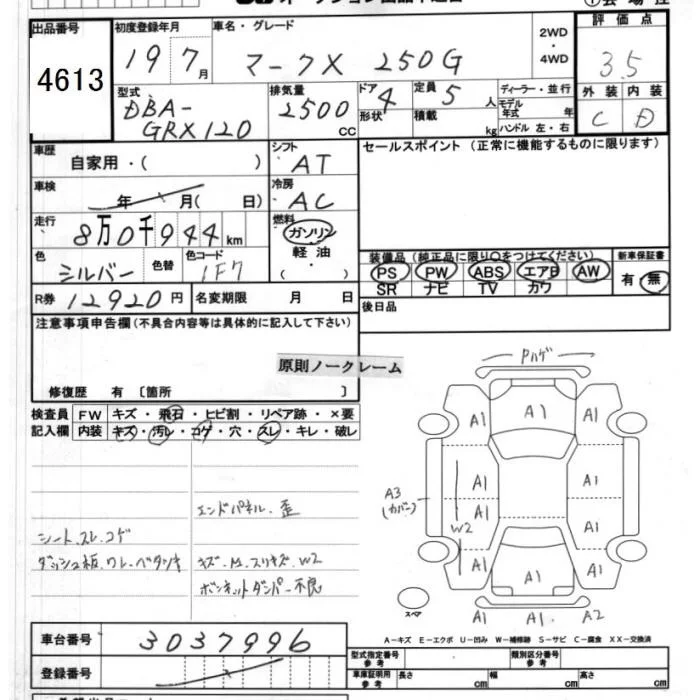 オークション出品申込書
出品番号
4613
初度登録年月
19 7月
車名・グレード
マークX 250G
2WD
・
4WD
評価点
3.5
型式
DBA-
GRX120
排気量
2500
cc
ドア
4
形状
定員
5 人
積載
kg
ディーラー・並行
モデル
年式 年
ハンドル 左・右
外装 内装
C D
車歴
自家用・( )
シフト
AT
セールスポイント (正常に機能するものに限ります)
車検
年 月( 日)
冷房
AC
走行
8万0千944km
燃料
ガソリン
軽油
( )
色
シルバー
色替
色コード
1F7
R券 12920円
名変期限 月 日
装備品(純正品に限り○をつけてください)
PS PW ABS エアB AW
SR ナビ TV カワ
新車保証書
有・無
後日品
注意事項申告欄(不具合内容等は具体的に記入して下さい)
原則ノークレーム
修復歴 有〔箇所 〕
検査員
記入欄
FW キズ・飛石・ヒビ割・リペア跡・×要
内装 キズ・汚レ・コゲ・穴・スレ・キレ・破レ
エンドパネル.歪
シート.スレ.コゲ
ダッシュ板.ワレ.ベタツキ
キズ.M.スリキズ.W2
ボンネットダンパー不良
Pハゲ
A1 A1 A1
A1 A1
A3
(カバー)
A1 A1
W2
A1 A1 A1
スペア
A1 A1 A2
A−キズ E−エクボ U−凹み W−補修跡 S−サビ C−腐食 XX−交換済
車台番号
3037996
登録番号
型式指定番号
参考
類別区分番号
参考
車庫証明用
参考
長さ cm
幅 cm
高さ cm